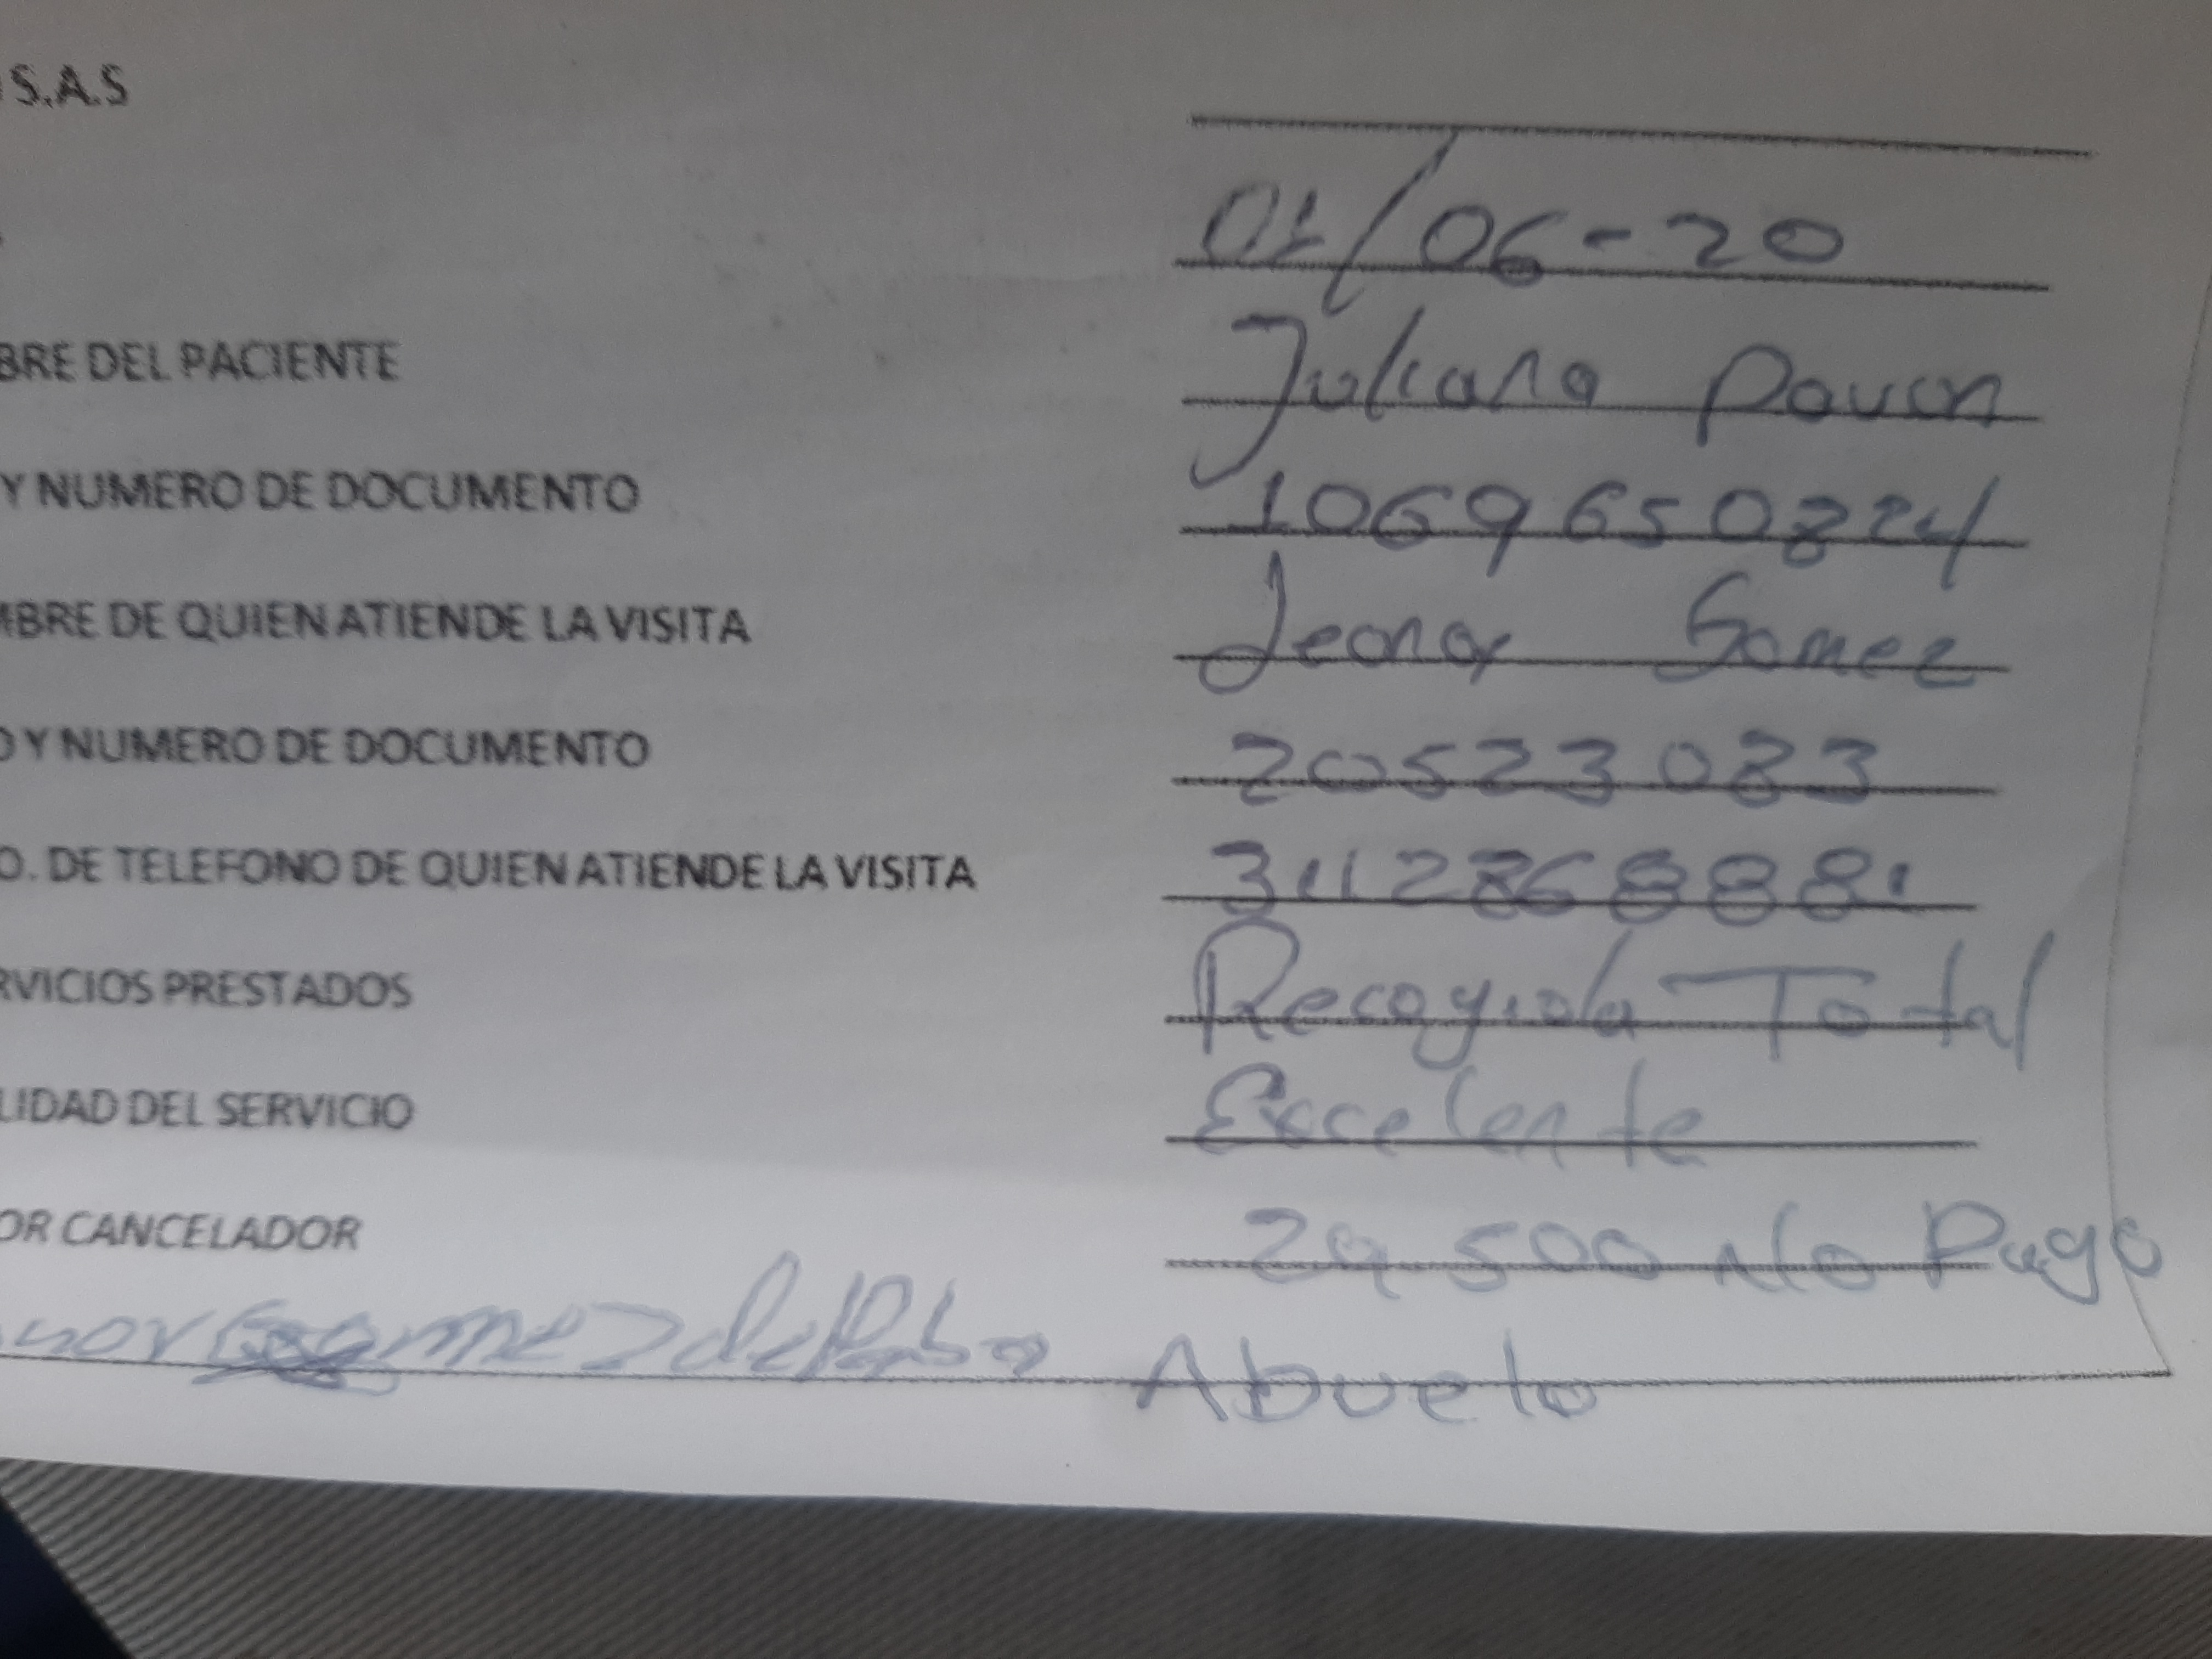 S.A.S
01/06-20
BRE DEL PACIENTE Juliana Pavon
Y NUMERO DE DOCUMENTO 1069650824
MBRE DE QUIEN ATIENDE LA VISITA Leonor Gomez
O Y NUMERO DE DOCUMENTO 20523083
O. DE TELEFONO DE QUIEN ATIENDE LA VISITA 3112868881
RVICIOS PRESTADOS Recogida Total
LIDAD DEL SERVICIO Excelente
OR CANCELADOR 29.500 No Pago
nor Gomez de Abuelo